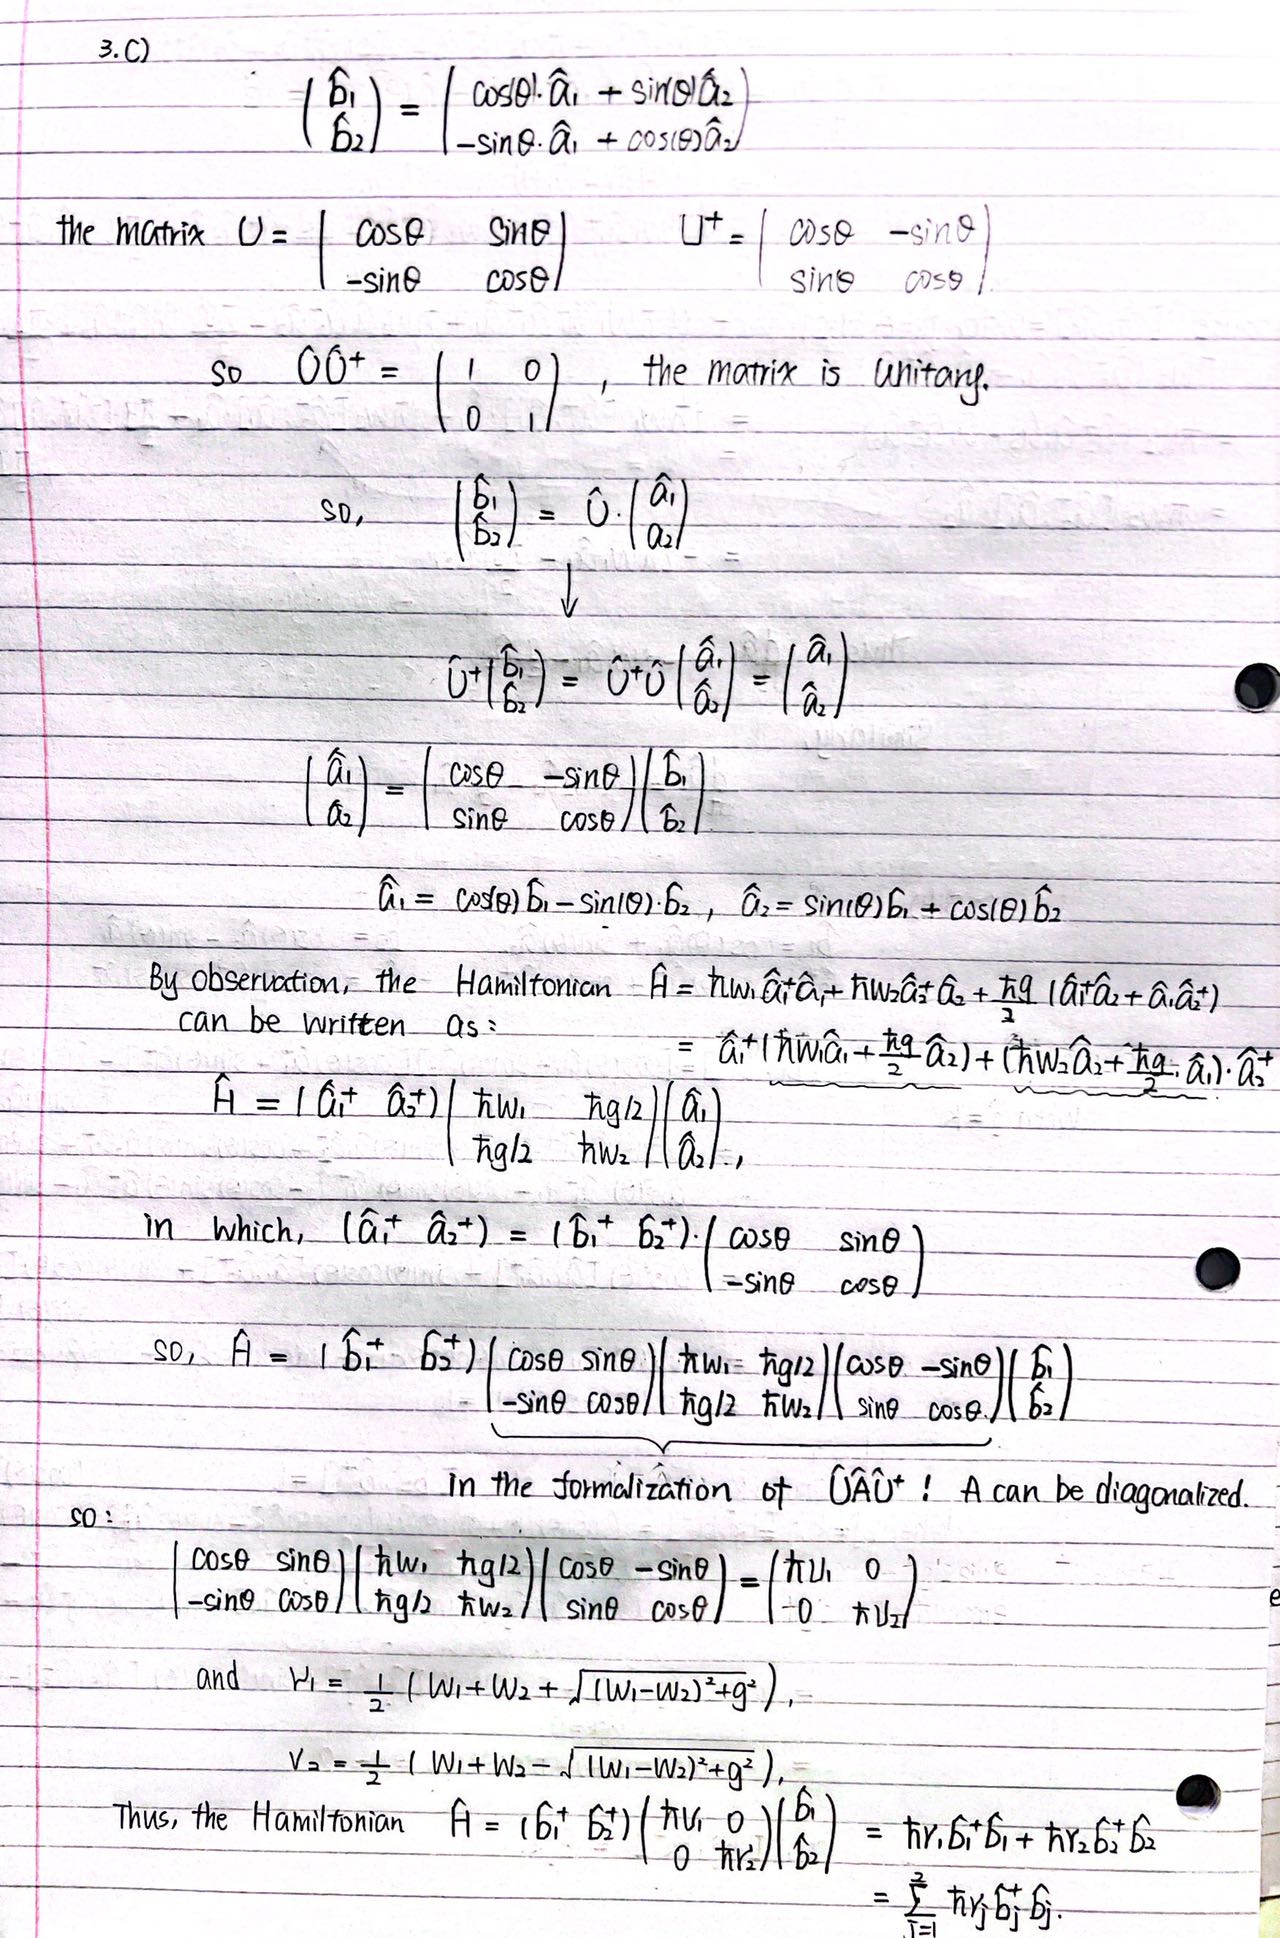 3.C)
(b̂₁ b̂₂) = (cos(θ)·â₁ + sin(θ)â₂ -sinθ·â₁ + cos(θ)â₂)
the matrix U = (cosθ sinθ -sinθ cosθ) U⁺ = (cosθ -sinθ sinθ cosθ)
so ÛÛ⁺ = (1 0 0 1), the matrix is unitary.
so, (b̂₁ b̂₂) = Û·(â₁ a₂)
↓
Û⁺(b̂₁ b̂₂) = Û⁺Û(â₁ â₂) = (â₁ â₂)
(â₁ â₂) = (cosθ -sinθ sinθ cosθ)(b̂₁ b̂₂)
â₁ = cos(θ)b̂₁ - sin(θ)·b̂₂, â₂ = sin(θ)b̂₁ + cos(θ)b̂₂
By observation, the Hamiltonian Ĥ = ħw₁â₁⁺â₁ + ħw₂â₂⁺â₂ + ħg/2 (â₁⁺â₂ + â₁â₂⁺)
can be written as: = â₁⁺(ħw₁â₁ + ħg/2 â₂) + (ħw₂â₂ + ħg/2·â₁)·â₂⁺
Ĥ = (â₁⁺ â₂⁺)(ħw₁ ħg/2 ħg/2 ħw₂)(â₁ â₂),
in which, (â₁⁺ â₂⁺) = (b̂₁⁺ b̂₂⁺)·(cosθ sinθ -sinθ cosθ)
so, Ĥ = (b̂₁⁺ b̂₂⁺)(cosθ sinθ -sinθ cosθ)(ħw₁ ħg/2 ħg/2 ħw₂)(cosθ -sinθ sinθ cosθ)(b̂₁ b̂₂)
in the formalization of ÛÂÛ⁺ ! A can be diagonalized.
so:
(cosθ sinθ -sinθ cosθ)(ħw₁ ħg/2 ħg/2 ħw₂)(cosθ -sinθ sinθ cosθ) = (ħν₁ 0 0 ħν₂)
and ν₁ = 1/2 (w₁+w₂+√((w₁-w₂)²+g²)),
ν₂ = 1/2 (w₁+w₂-√((w₁-w₂)²+g²)),
Thus, the Hamiltonian Ĥ = (b̂₁⁺ b̂₂⁺)(ħν₁ 0 0 ħν₂)(b̂₁ b̂₂) = ħν₁b̂₁⁺b̂₁ + ħν₂b̂₂⁺b̂₂
= Σ²ⱼ₌₁ ħνⱼb̂ⱼ⁺b̂ⱼ.